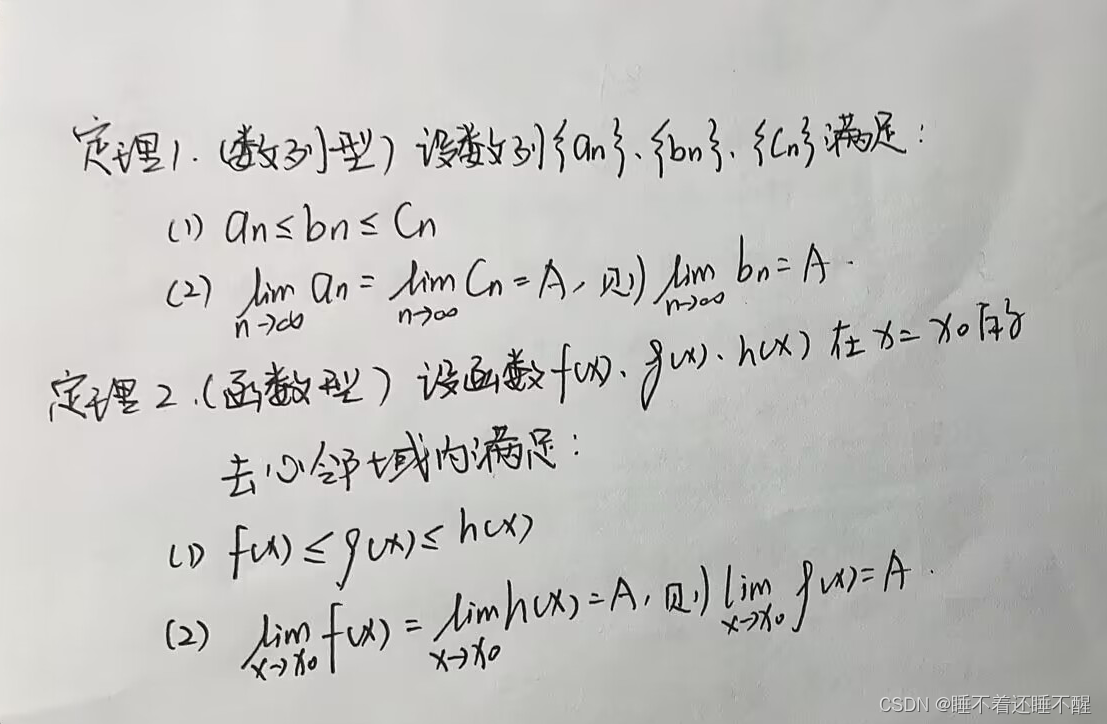 定理1.(数列型)设数列{an}、{bn}、{Cn}满足:
(1) an≤bn≤Cn
(2) lim n→∞ an = lim n→∞ Cn = A,则 lim n→∞ bn = A.
定理2.(函数型)设函数f(x)、g(x)、h(x)在x=x0的
去心邻域内满足:
(1) f(x)≤g(x)≤h(x)
(2) lim x→x0 f(x) = lim x→x0 h(x) = A,则 lim x→x0 g(x) = A.
CSDN @睡不着还睡不醒